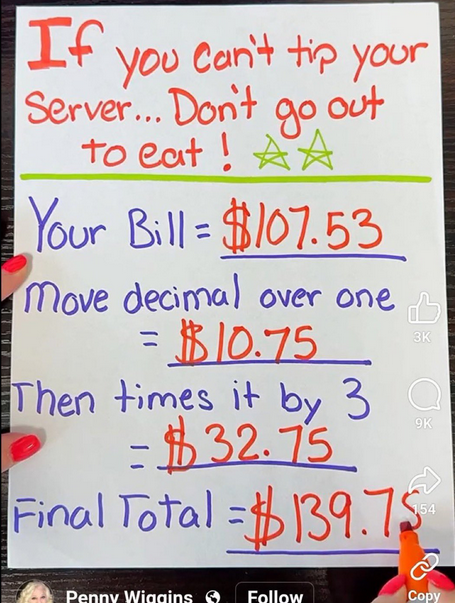 If you can't tip your
Server... Don't go out
to eat!
Your Bill = $107.53
Move decimal over one
= $10.75
Then times it by 3
= $32.75
Final Total = $139.75
3K
9K
154
Copy
Penny Wiggins Follow